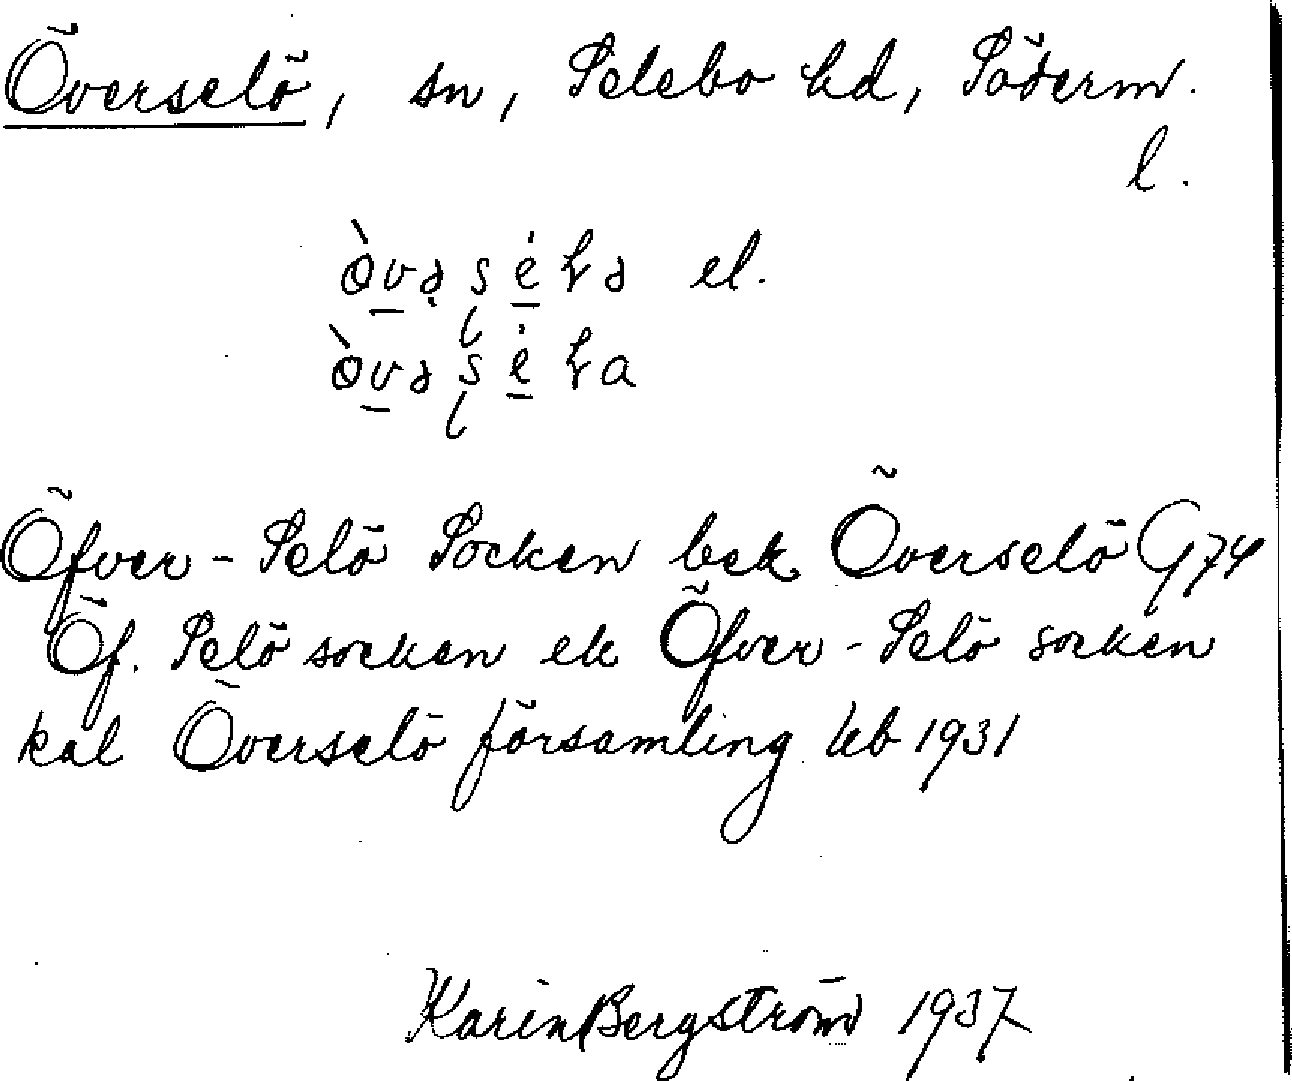 Överselö, sn, Selebo hd, Söderm.
l.
el.
Öfver-Selö Socken bek Överselö G74
Öf. Selö socken ek Öfver-Selö socken
kal Överselö församling kb 1931
Karin Bergström 1937